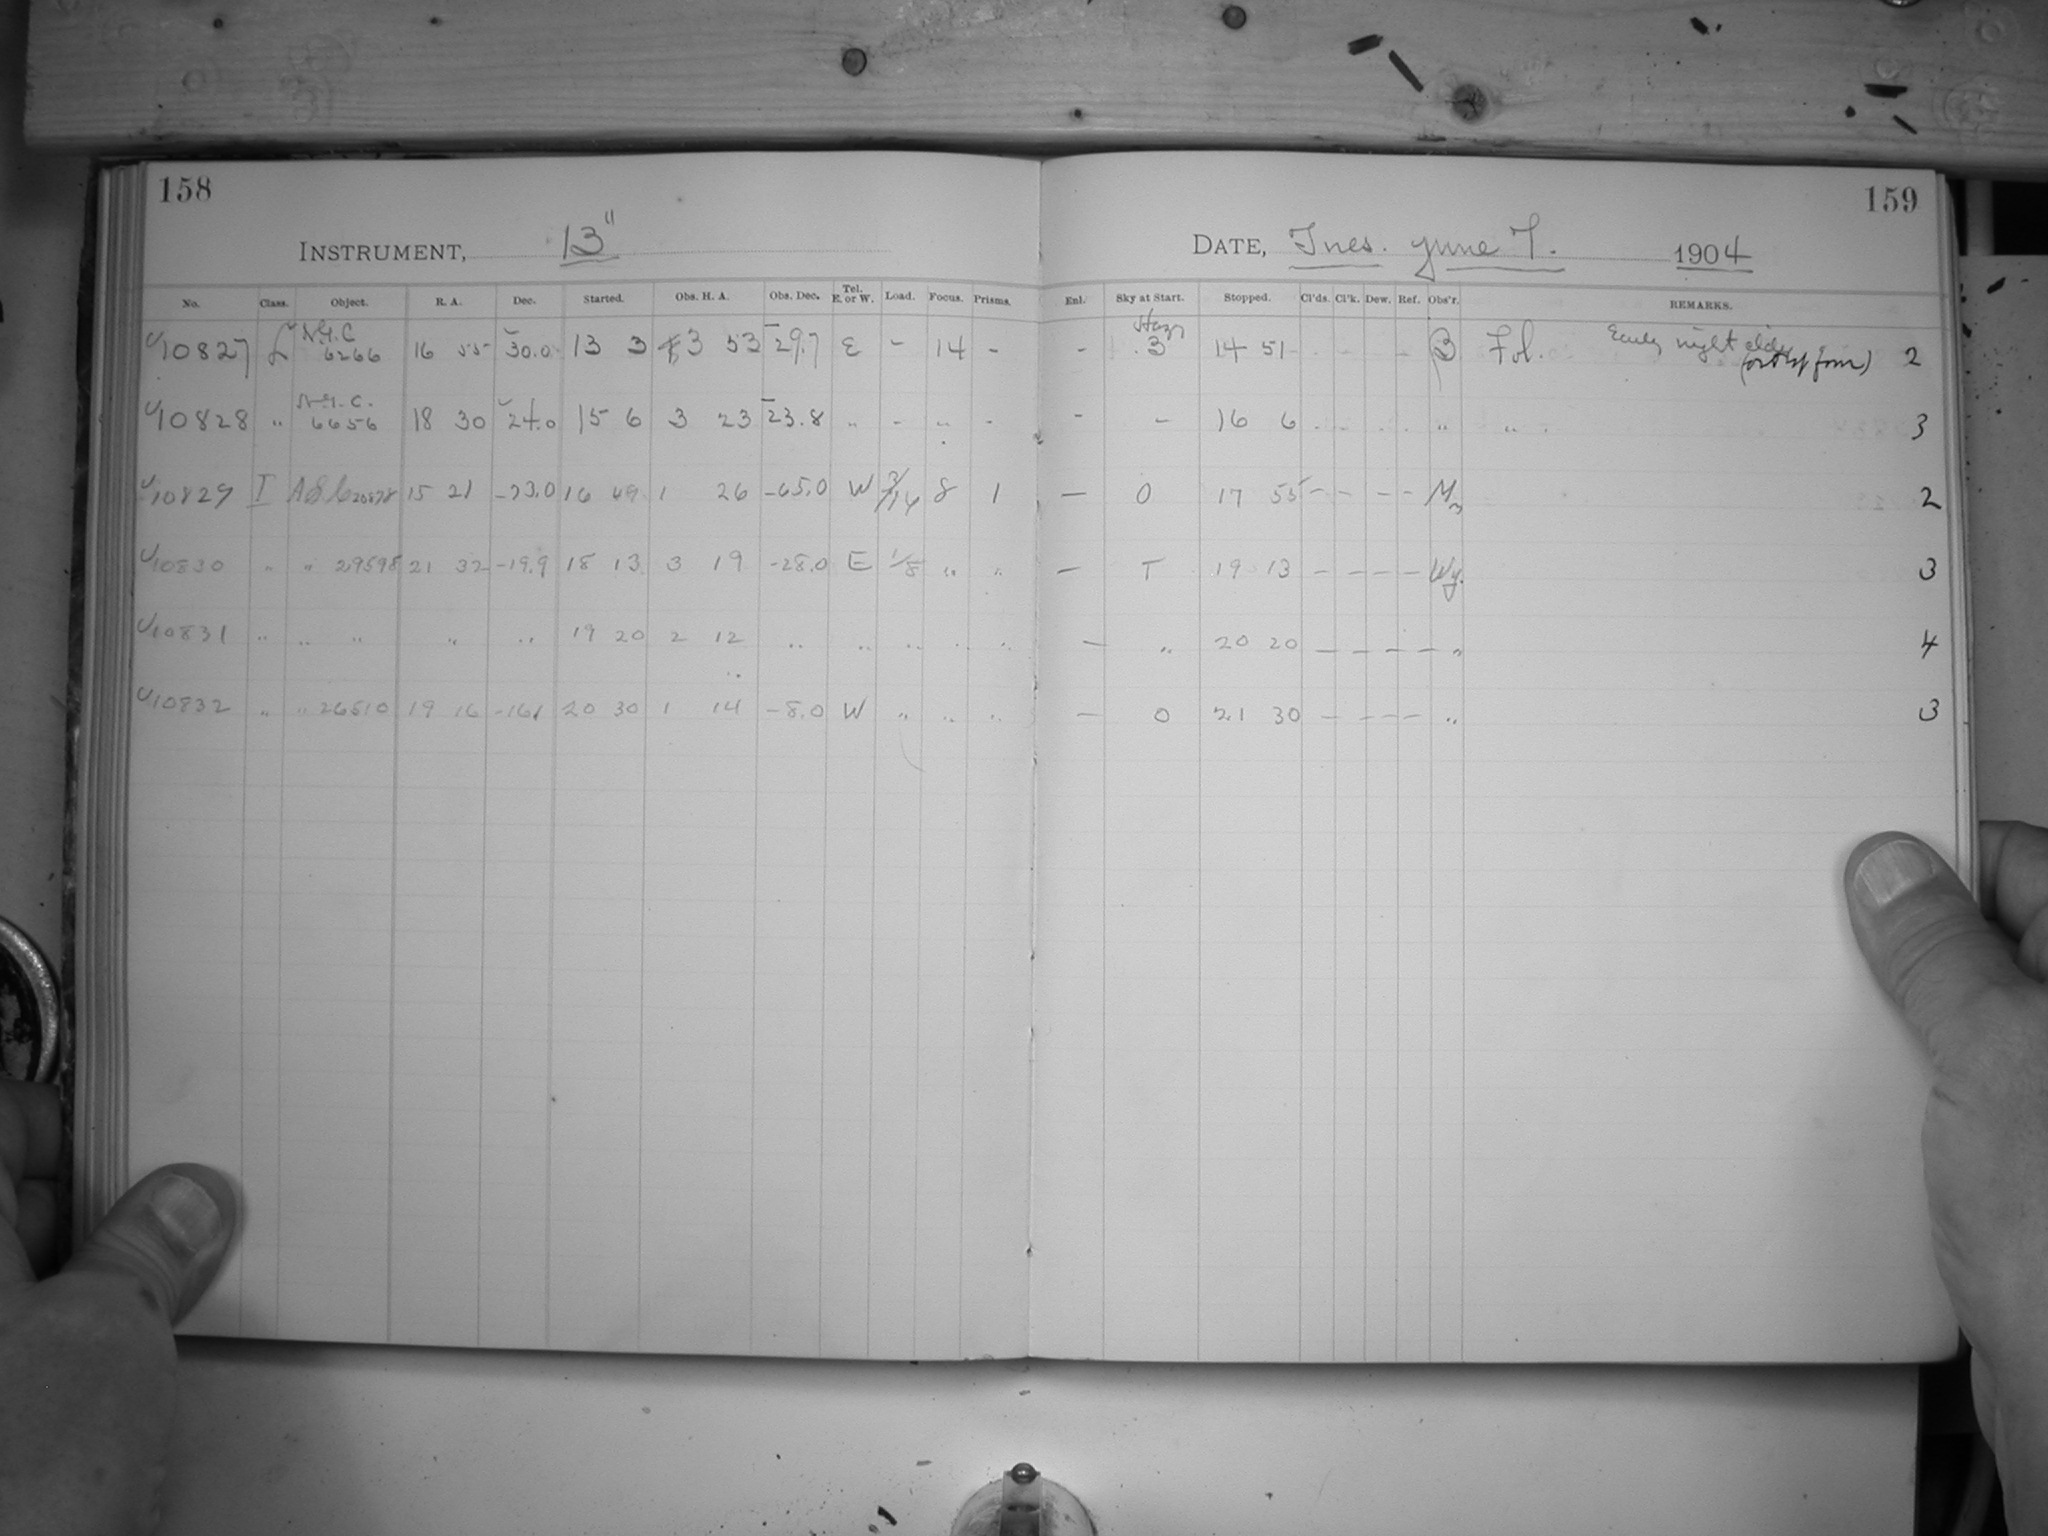 158
159
INSTRUMENT, 13"
DATE, Tues. June 7. 1904
No. Class. Object. R. A. Dec. Started. Obs. H. A. Obs. Dec. Tel. E. or W. Load. Focus. Prisms. Enl. Sky at Start. Stopped. Cl'ds. Cl'k. Dew. Ref. Obs'r. REMARKS.
10827 L N.G.C 6266 16 55 -30.0 13 3 3 53 -29.7 E - 14 - - Hazy 3 14 51 - - - - B Fol. Early night cldy 2
10828 " N.G.C. 6656 18 30 -24.0 15 6 3 23 -23.8 " - " - - - 16 6 - - - - " " 3
10829 I AGC 20878 15 21 -73.0 16 49 1 26 -65.0 W 3/14 8 1 — 0 17 55 - - - - M 2
10830 " " 29598 21 32 -19.9 18 13 3 19 -28.0 E 1/8 " " — T 19 13 - - - - Wy. 3
10831 " " " " " 19 20 2 12 " " " " " — " 20 20 - - - - " 4
10832 " " 26510 19 16 -16.1 20 30 1 14 -8.0 W " " " — 0 21 30 - - - - " 3